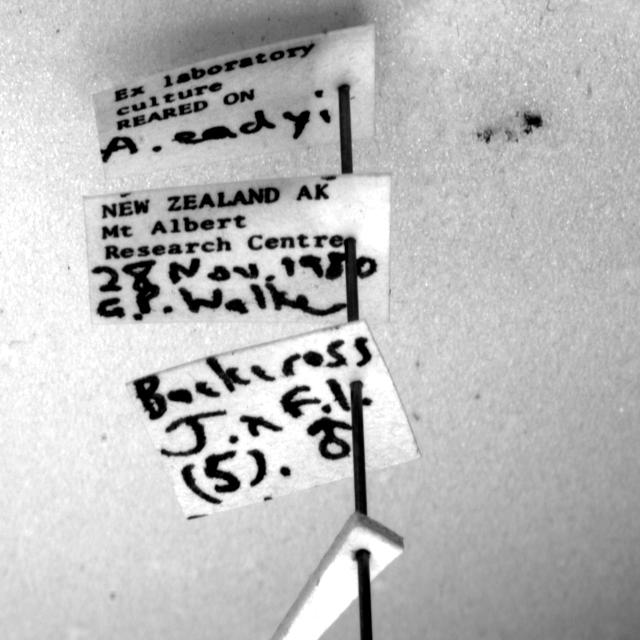 Ex laboratory
culture
REARED ON
A. eadyi
NEW ZEALAND AK
Mt Albert
Research Centre
28 Nov. 1980
G.P. Walker
Backcross
J. x F.1.
(5). 8